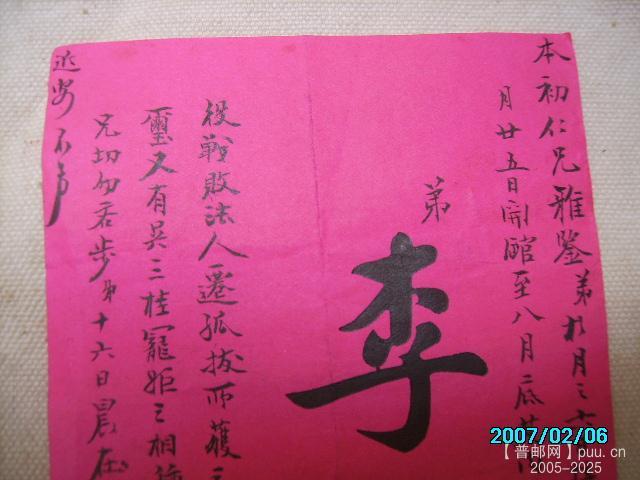 本初仁兄雅鉴弟於月之十
月廿五日開館至八月底
弟
李
役戰敗法人遷孤拔而獲
璽又有吳三桂寵姬之相
兄切勿吝步弟十六日晨在
近安不䇄
2007/02/06
【普邮网】puu.cn
2005-2025